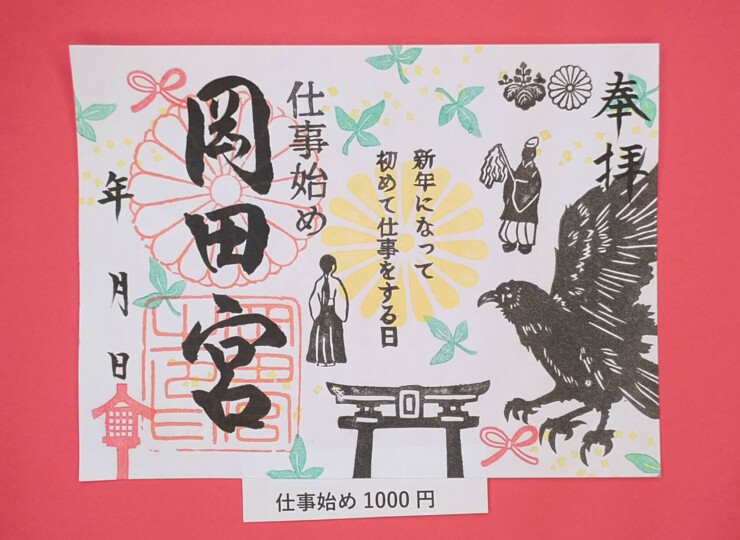 奉拝
新年になって
初めて仕事をする日
仕事始め
岡田宮
年 月 日
仕事始め 1000 円